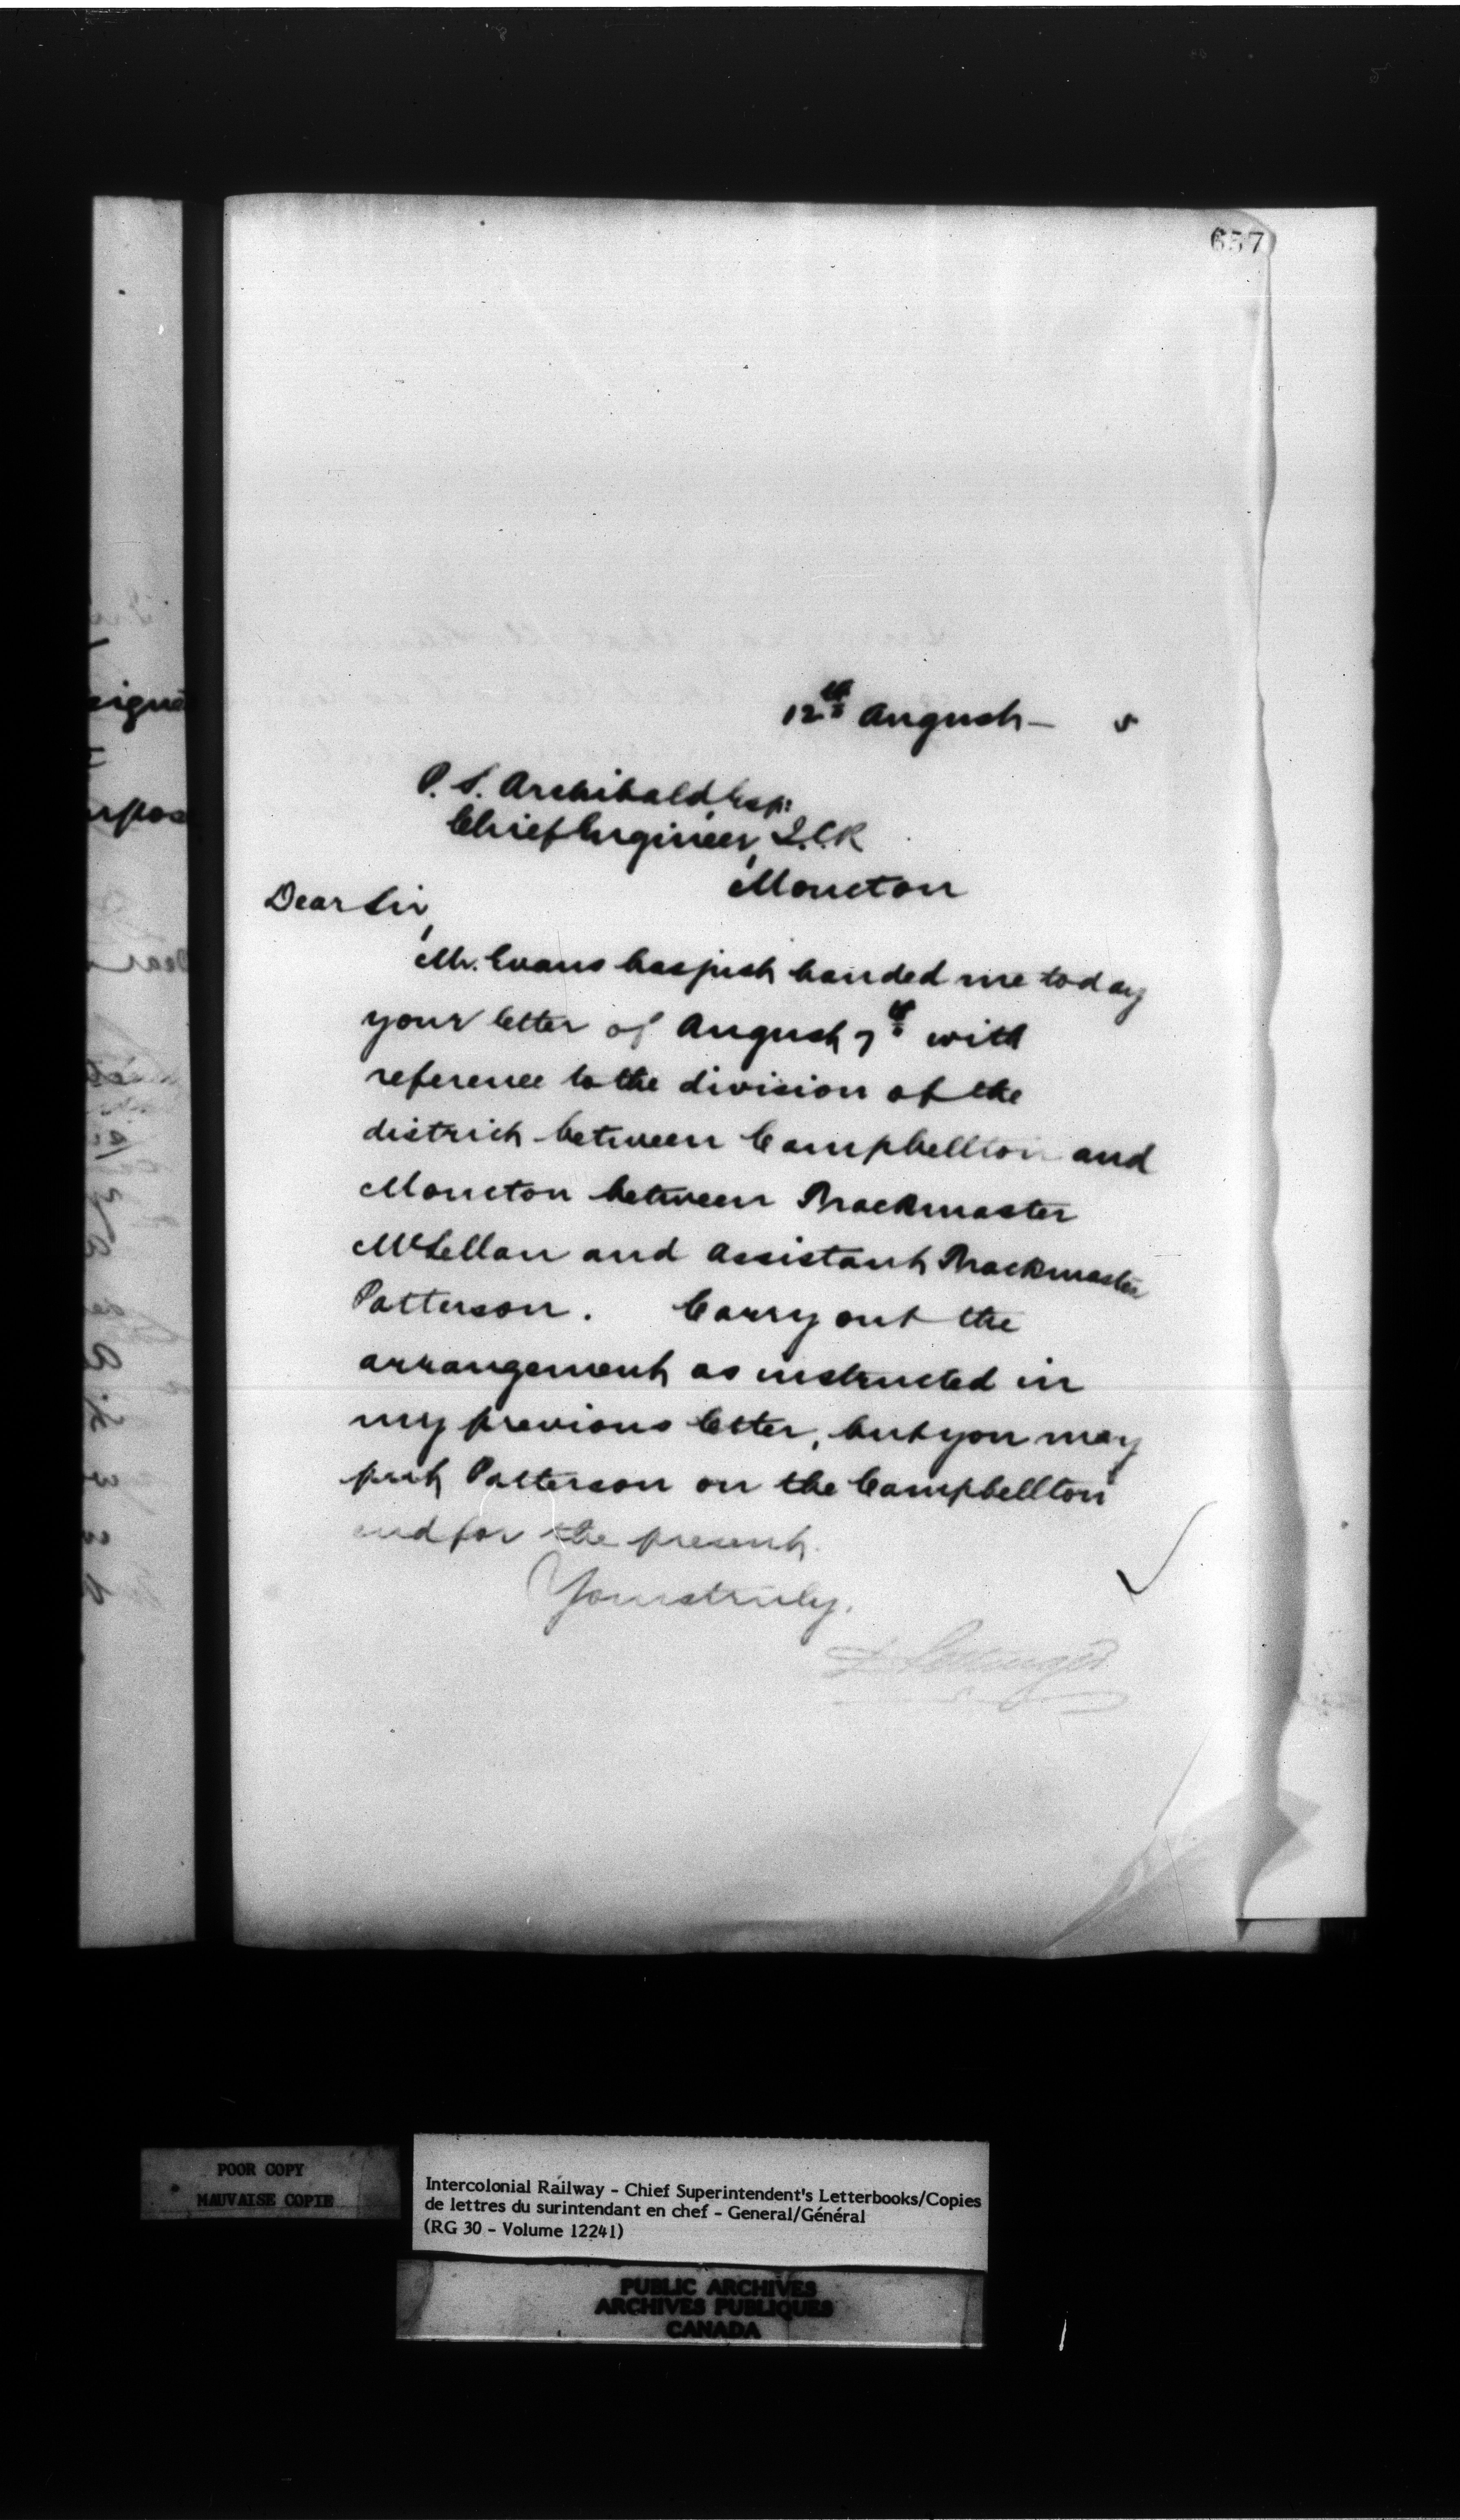 657
12th August — 5
P. S. Archibald, Esq:
Chief Engineer, I.C.R
Moncton
Dear Sir,
Mr. Evans has just handed me today
your letter of August 7th with
reference to the division of the
district between Campbellton and
Moncton between Trackmaster
McLellan and Assistant Trackmaster
Patterson. Carry out the
arrangement as instructed in
my previous letter, but you may
put Patterson on the Campbellton
end for the present.
Yours truly,
D Pottinger
POOR COPY
MAUVAISE COPIE
Intercolonial Railway - Chief Superintendent's Letterbooks/Copies
de lettres du surintendant en chef - General/Général
(RG 30 - Volume 12241)
PUBLIC ARCHIVES
ARCHIVES PUBLIQUES
CANADA